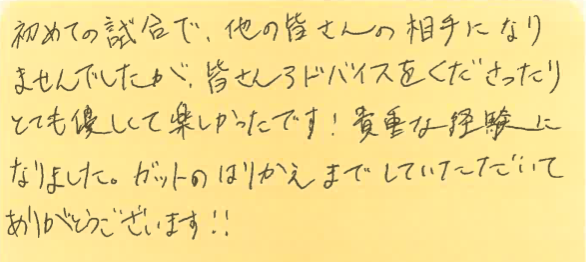 初めての試合で、他の皆さんの相手になり
ませんでしたが、皆さんアドバイスをくださったり
とても優しくて楽しかったです！貴重な経験に
なりました。ガットのはりかえまでしていただいて
ありがとうございます!!